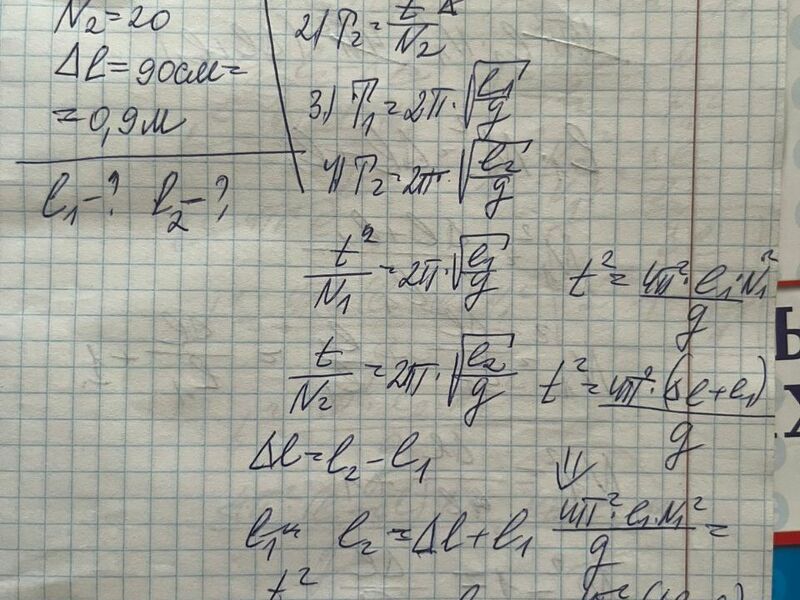 N₂=20
Δl=90см=
=0,9м
l₁-? l₂-?
2) T₂=t/N₂
3) T₁=2π·√(l₁/g)
4) T₂=2π·√(l₂/g)
t/N₁=2π·√(l₁/g) t²=4π²·l₁·N₁²/g
t/N₂=2π·√(l₂/g) t²=4π²·(Δl+l₁)/g
Δl=l₂-l₁ ⇓
l₁ l₂=Δl+l₁ 4π²·l₁·N₁²/g=
t²